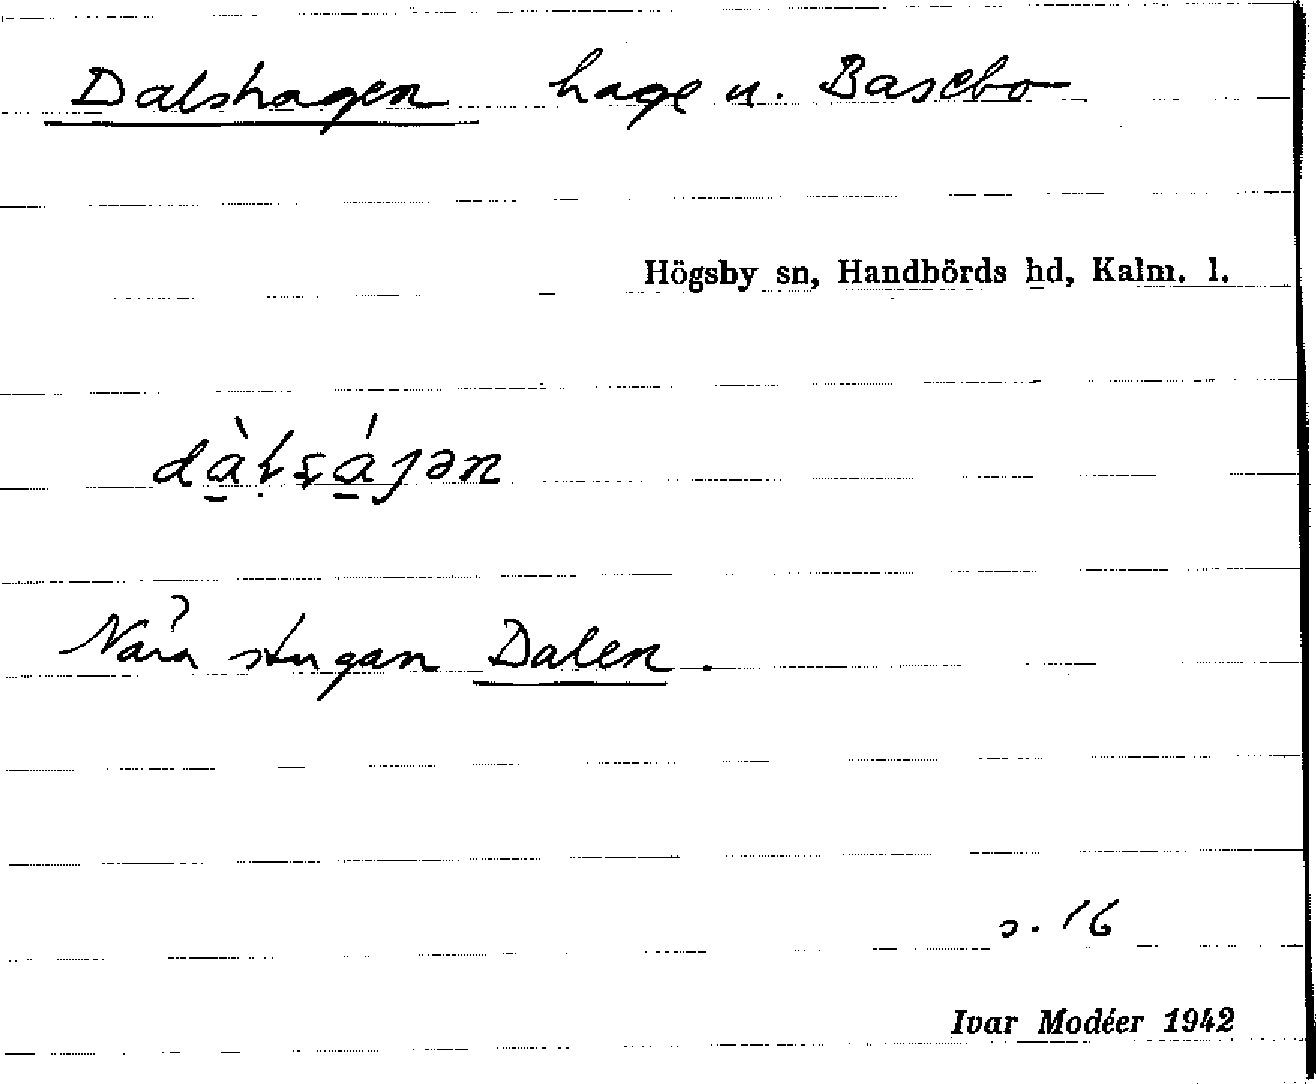 Dalshagen hage u. Basebo
Högsby sn, Handbörds hd, Kalm. l.
Nära stugan Dalen.
s. 16
Ivar Modéer 1942